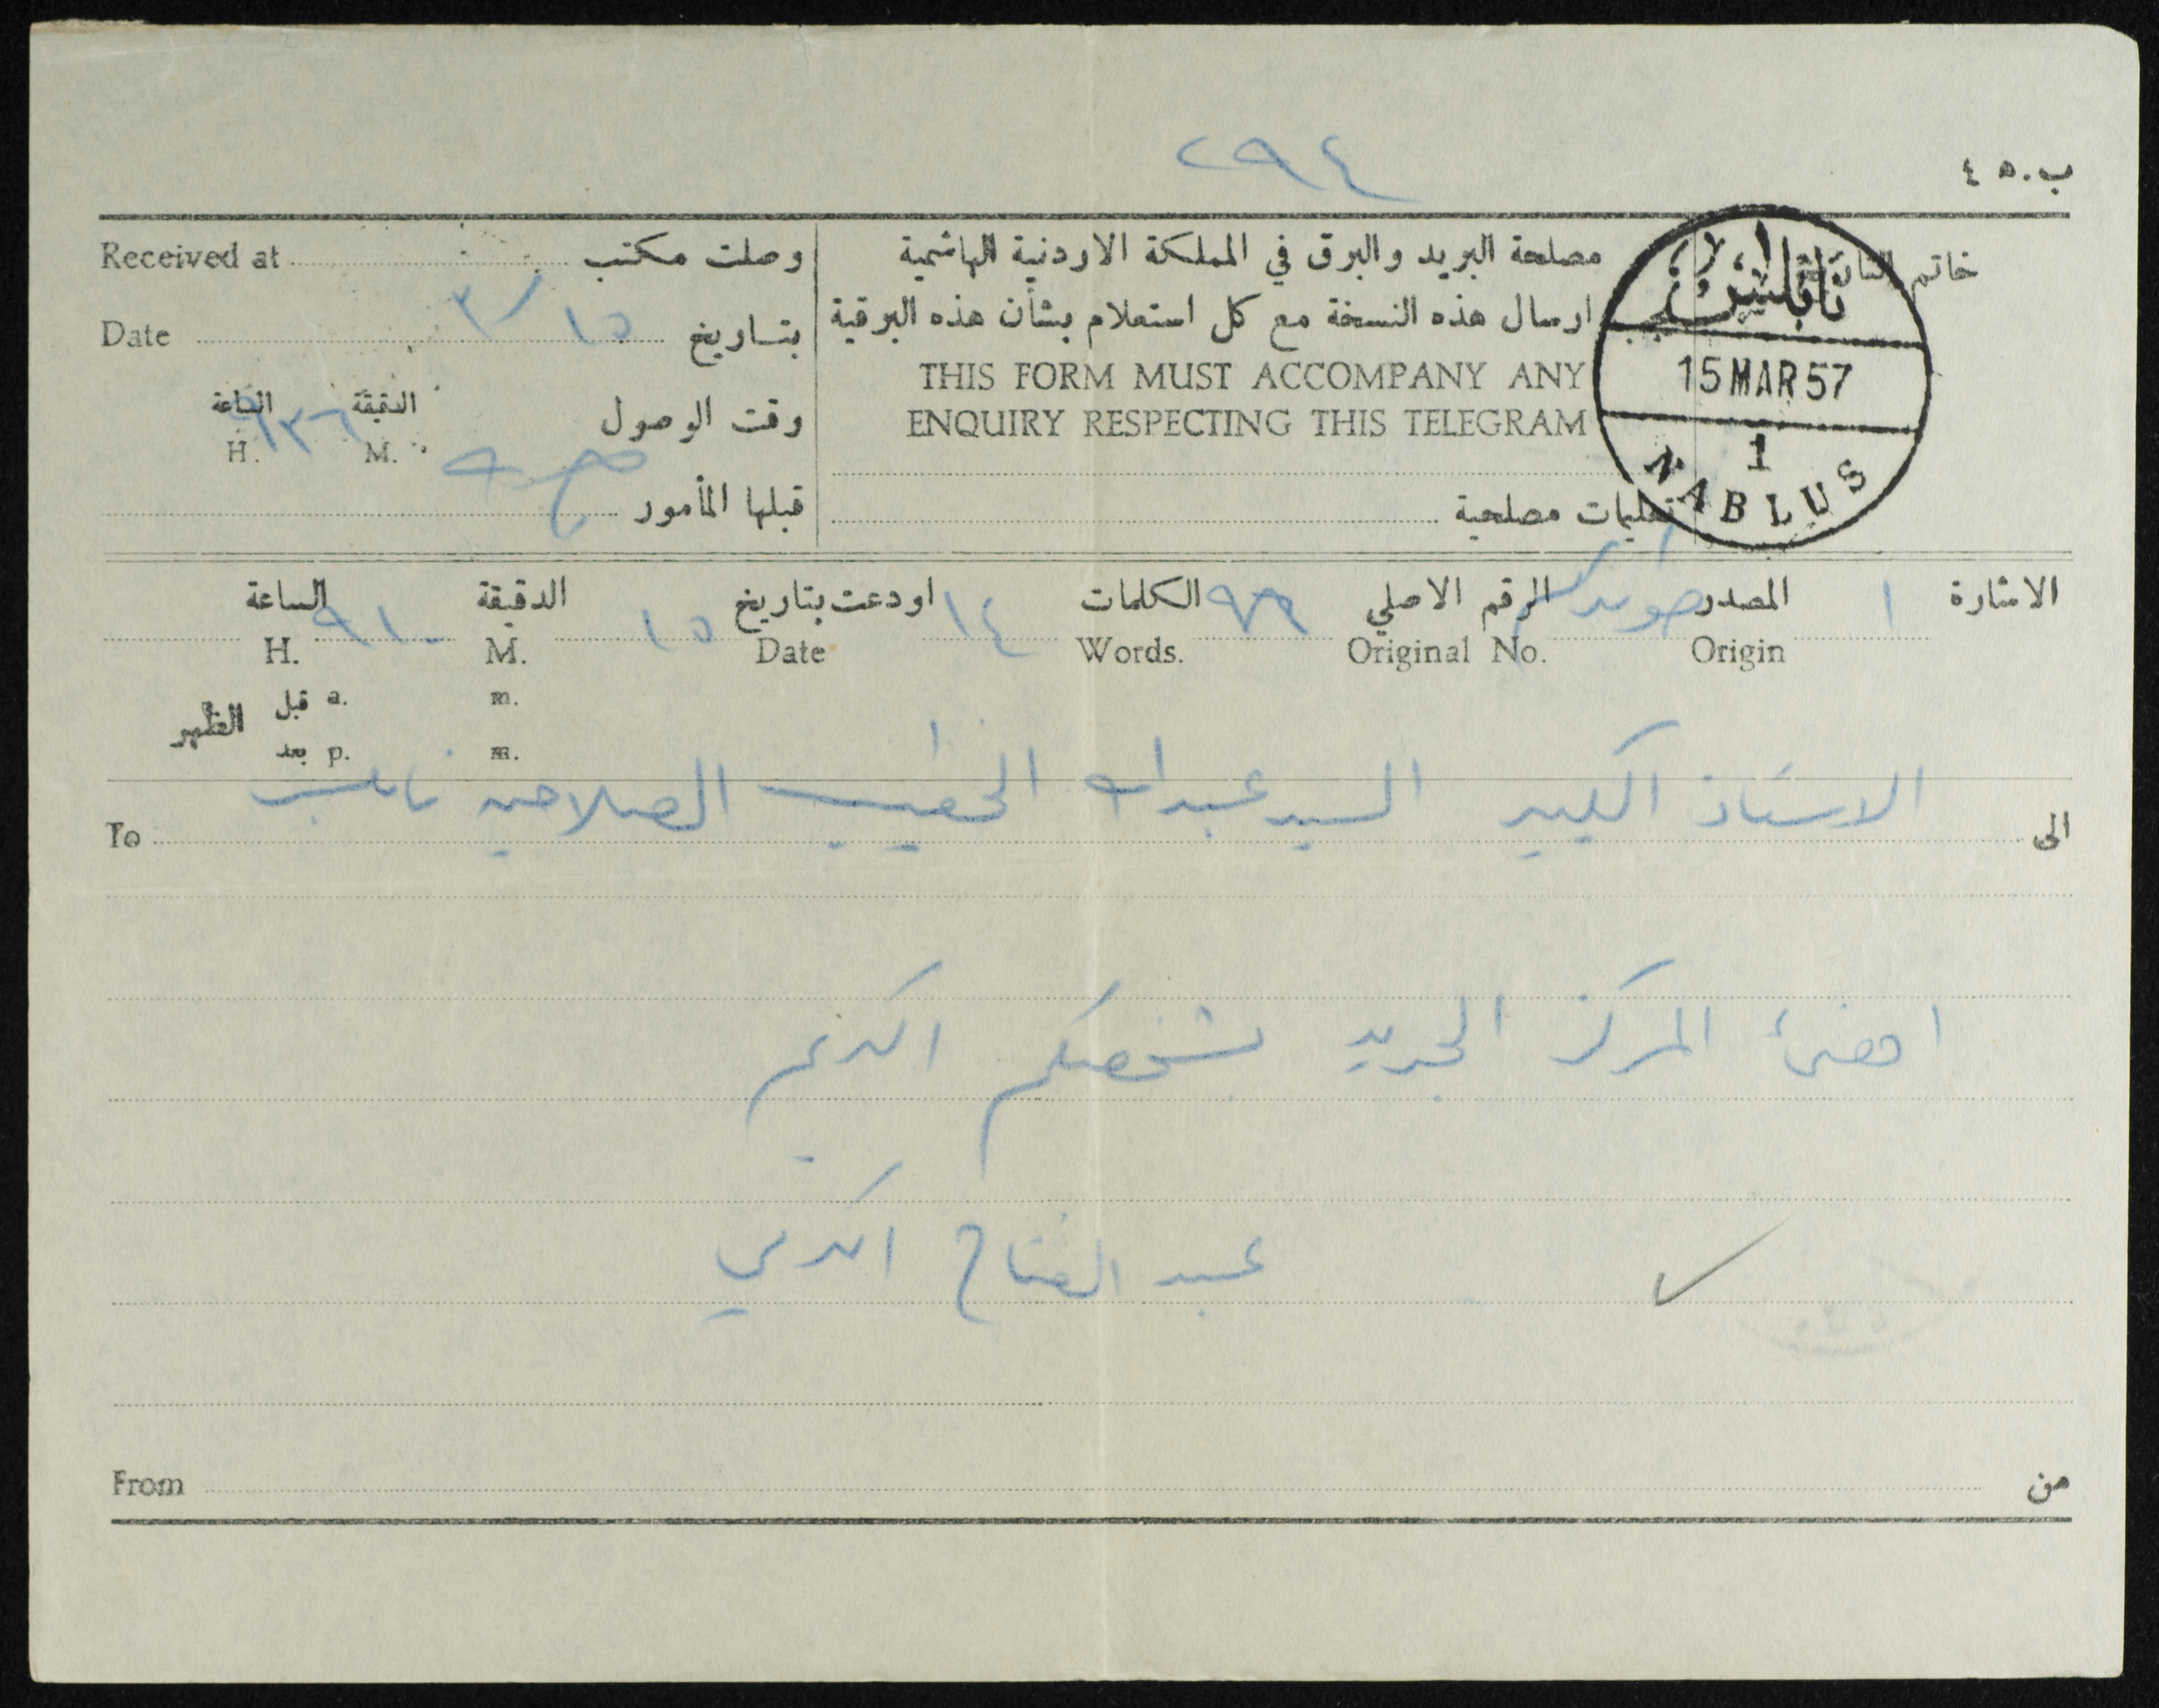 ٢٩٤
ب. ٤٥
Received at وصلت مكتب
مصلحة البريد والبرق في المملكة الاردنية الهاشمية
خاتم
نابلس
Date بتاريخ ١٥/٣
ارسال هذه النسخة مع كل استعلام بشأن هذه البرقية
THIS FORM MUST ACCOMPANY ANY
15 MAR 57
الساعة الدقيقة وقت الوصول
ENQUIRY RESPECTING THIS TELEGRAM
H. ٩٣٦ M.
1
NABLUS
قبلها المأمور
تعليمات مصلحية
الاشارة ١ المصدر الرقم الاصلي ٧٩ الكلمات ١٤ اودعت بتاريخ ١٥ الدقيقة ٩١٠ الساعة
Origin Original No. Words. Date M. H.
قبل a. m.
الظهر
بعد p. m.
الى الاستاذ الكبير السيد عبدالله الخطيب الصلاحيه نابلس To
اهنئ المركز الجديد بشخصكم الكريم
عبد الفتاح الكرمي
From من